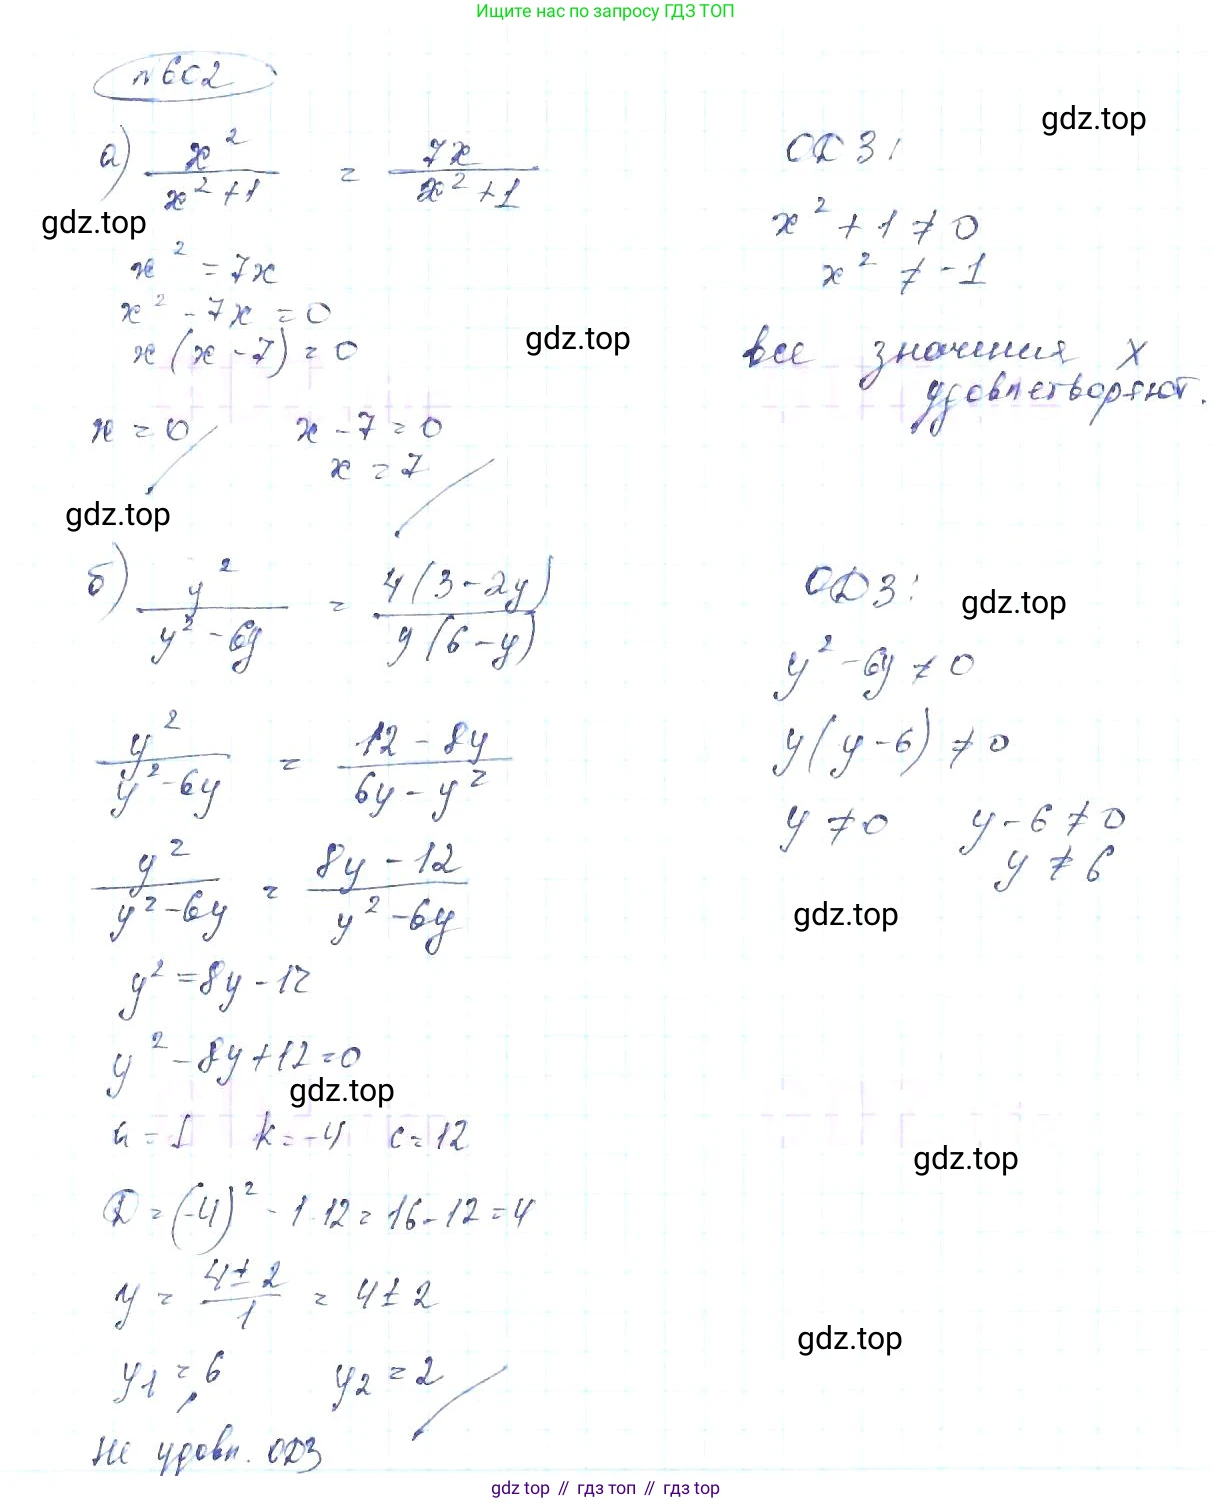 Ищите нас по запросу ГДЗ ТОП
№602
а) x²/(x²+1) = 7x/(x²+1)
ОДЗ:
gdz.top
x²+1≠0
gdz.top
x²=7x
x²≠-1
x²-7x=0
x(x-7)=0
gdz.top
все значения x
удовлетворяют.
x=0 x-7=0
x=7
gdz.top
б) y²/(y²-6y) = 4(3-2y)/y(6-y)
ОДЗ:
gdz.top
y²-6y≠0
y²/(y²-6y) = (12-8y)/(6y-y²)
y(y-6)≠0
y≠0 y-6≠0
y≠6
y²/(y²-6y) = (8y-12)/(y²-6y)
gdz.top
y²=8y-12
y²-8y+12=0
gdz.top
a=1 k=-4 c=12
gdz.top
D=(-4)²-1·12=16-12=4
y = (4±2)/1 = 4±2
gdz.top
y₁=6 y₂=2
Не удовл. ОДЗ
gdz top // гдз топ // gdz top